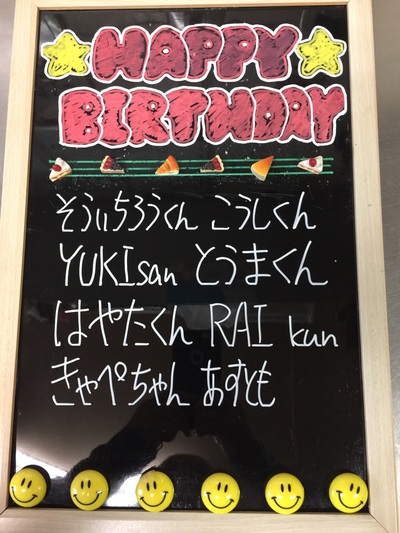 HAPPY
BIRTHDAY
そういちろうくん こうしくん
YUKIsan とうまくん
はやたくん RAI kun
きゃぺちゃん あすとも